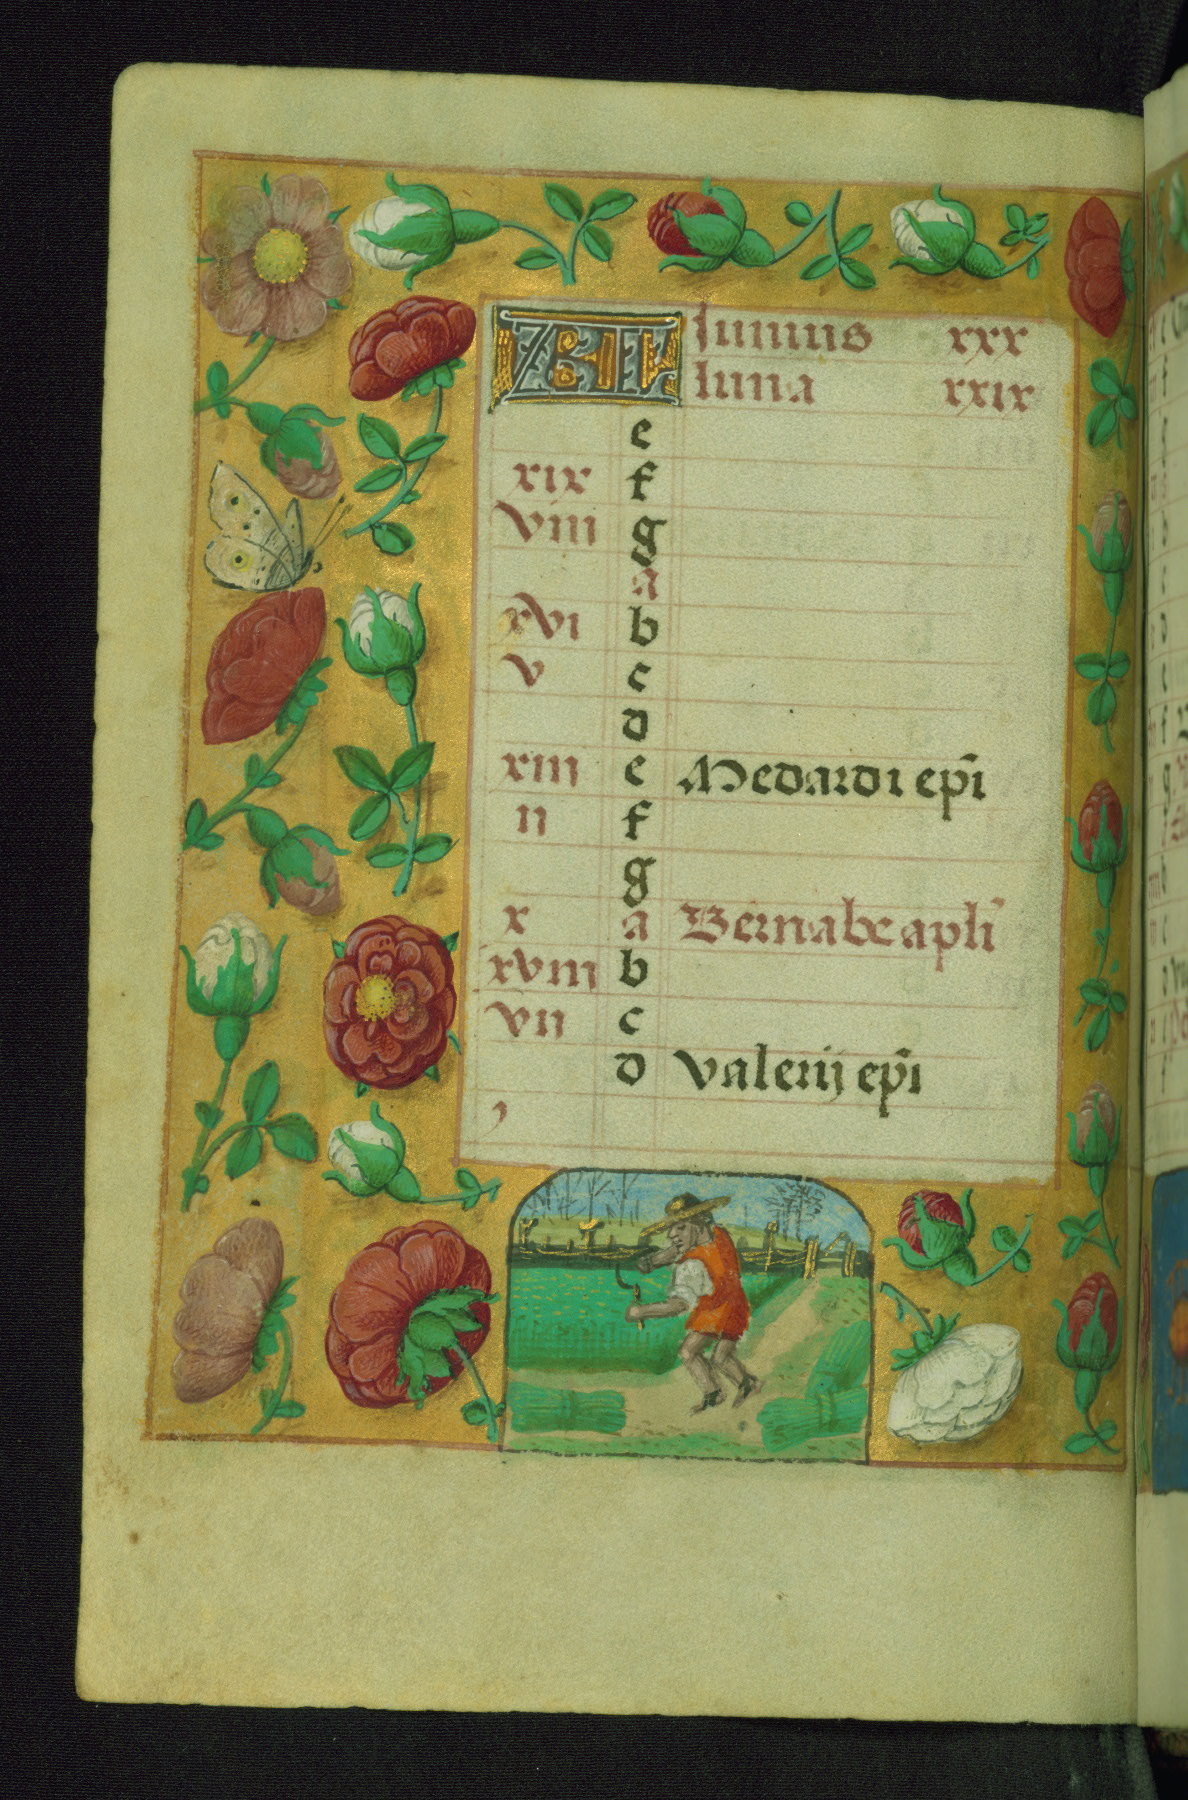 KL Iunius xxx
luna xxix
e
xix f
viii g
a
xvi b
v c
d
xiii e Medardi ep̄i
ii f
g
x a Bernabe apl̄i
xviii b
vii c
d valerij ep̄i